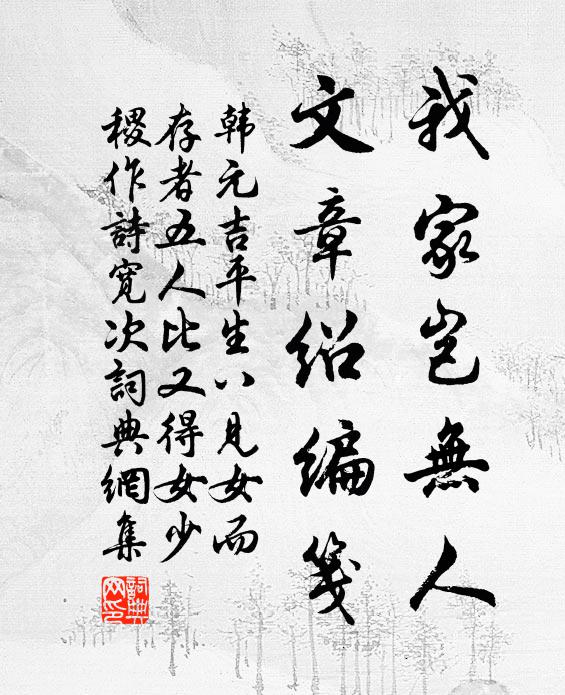 我家岂無人
文章绍编笺
韩元吉平生八見女而
存者五人比又得女少
稷作詩寛次詞典網集
詞典网印